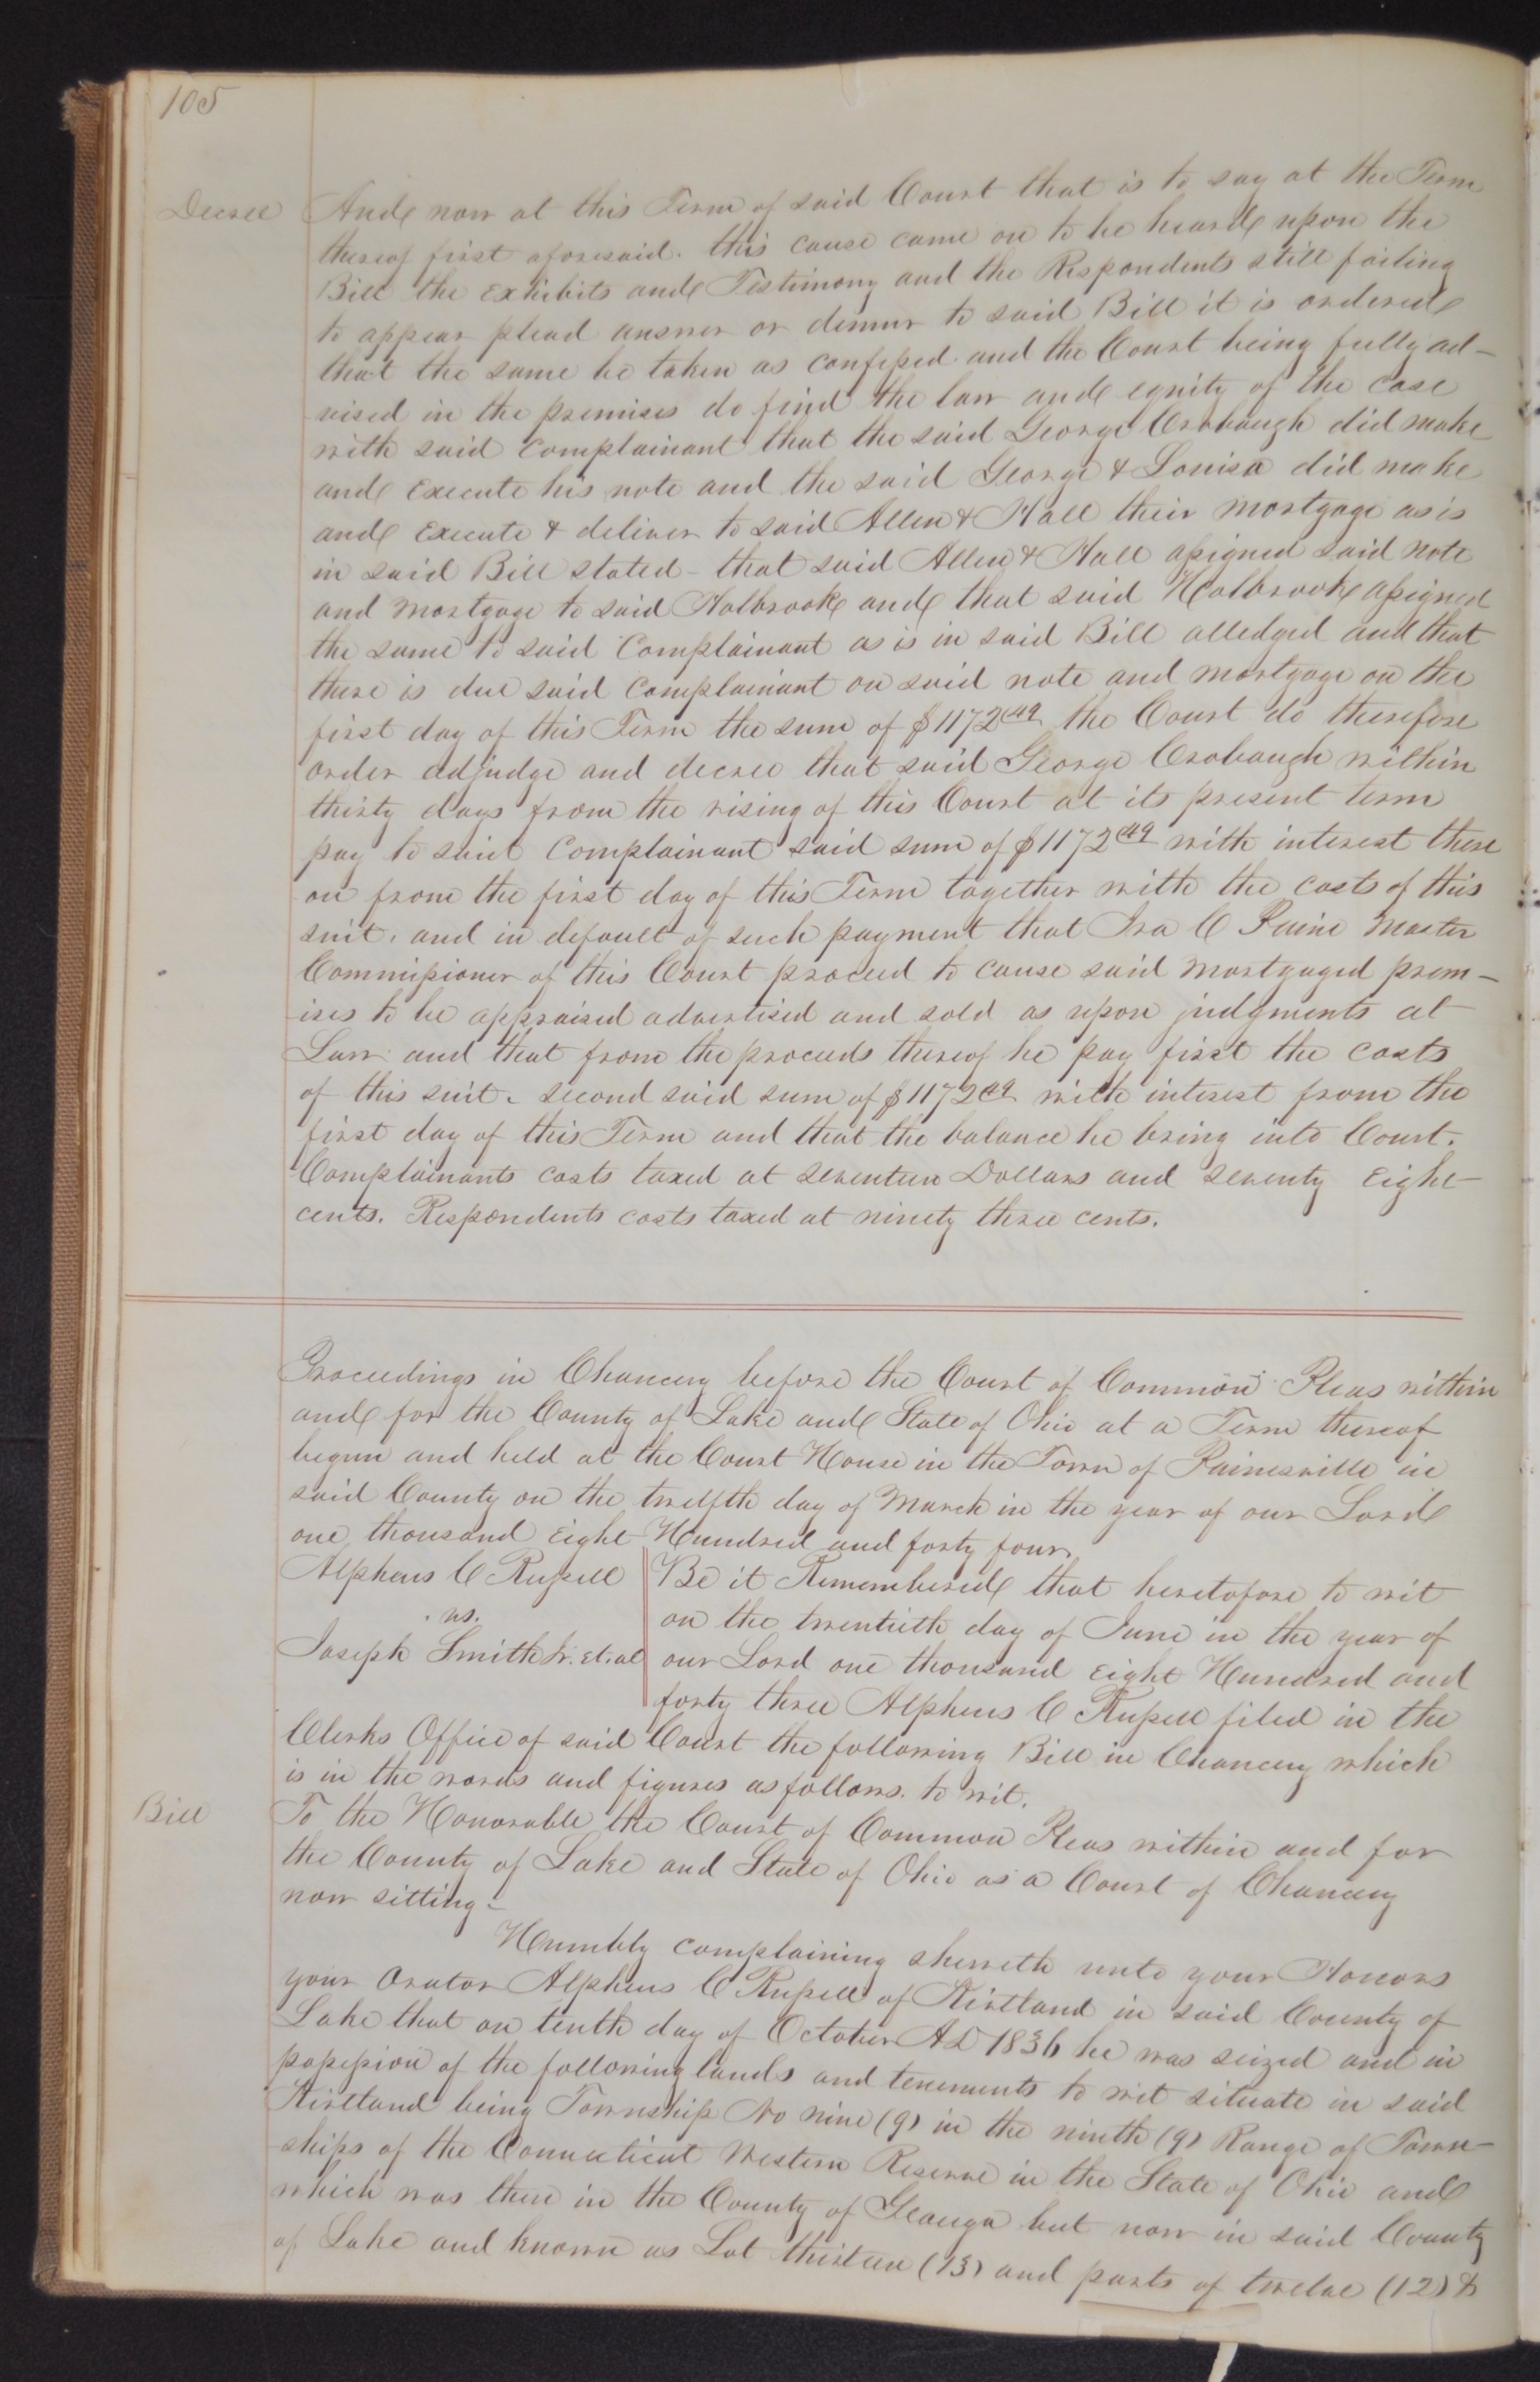 105
Decree And now at this Term of said Court that is to say at the Term
thereof first aforesaid. this cause came on to be heard upon the
Bill the Exhibits and Testimony and the Respondents still failing
to appear plead answer or demur to said Bill it is ordered
that the same be taken as confessed and the Court being fully ad-
vised in the premises do find the law and equity of the case
with said Complainant that the said George Crobaugh did make
and Execute his note and the said George & Louisa did make
and Execute & deliver to said Allen & Hall their mortgage as is
in said Bill stated - that said Allen & Hall assigned said note
and mortgage to said Holbrook and that said Holbrook assigned
the same to said Complainant as is in said Bill alledged and that
there is due said Complainant on said note and mortgage on the
first day of this Term the sum of $1172 49 the Court do therefore
order adjudge and decree that said George Crobaugh within
thirty days from the rising of this Court at its present term
pay to said Complainant said sum of $1172 49 with interest there
on from the first day of this Term together with the costs of this
suit, and in default of such payment that Ira C Paine Master
Commissioner of this Court proceed to cause said Mortgaged prem-
ises to be appraised advertised and sold as upon judgments at
Law and that from the proceeds thereof he pay first the costs
of this suit. second said sum of $1172 49 with interest from the
first day of this Term and that the balance he bring into Court.
Complainants costs taxed at seventeen Dollars and seventy Eight
cents. Respondents costs taxed at ninety three cents.
Proceedings in Chancery before the Court of Common Pleas within
and for the County of Lake and State of Ohio at a Term thereof
begun and held at the Court House in the Town of Painesville in
said County on the twelfth day of March in the year of our Lord
one thousand Eight Hundred and forty four.
Alpheus C Russell Be it Remembered that heretofore to wit
vs. on the twentieth day of June in the year of
Joseph Smith Jr. et. al our Lord one thousand Eight Hundred and
forty three Alpheus C Russell filed in the
Clerks Office of said Court the following Bill in Chancery which
is in the words and figures as follows. to wit.
Bill To the Honorable the Court of Common Pleas within and for
the County of Lake and State of Ohio as a Court of Chancery
now sitting -
Humbly complaining sheweth unto your Honors
your Orator Alpheus C Russell of Kirtland in said County of
Lake that on tenth day of October AD 1836 he was seized and in
possession of the following lands and tenements to wit situate in said
Kirtland being Township No nine (9) in the ninth (9) Range of Town-
ships of the Connecticut Western Reserve in the State of Ohio and
which was then in the County of Geauga but now in said County
of Lake and known as Lot thirteen (13) and parts of twelve (12) &